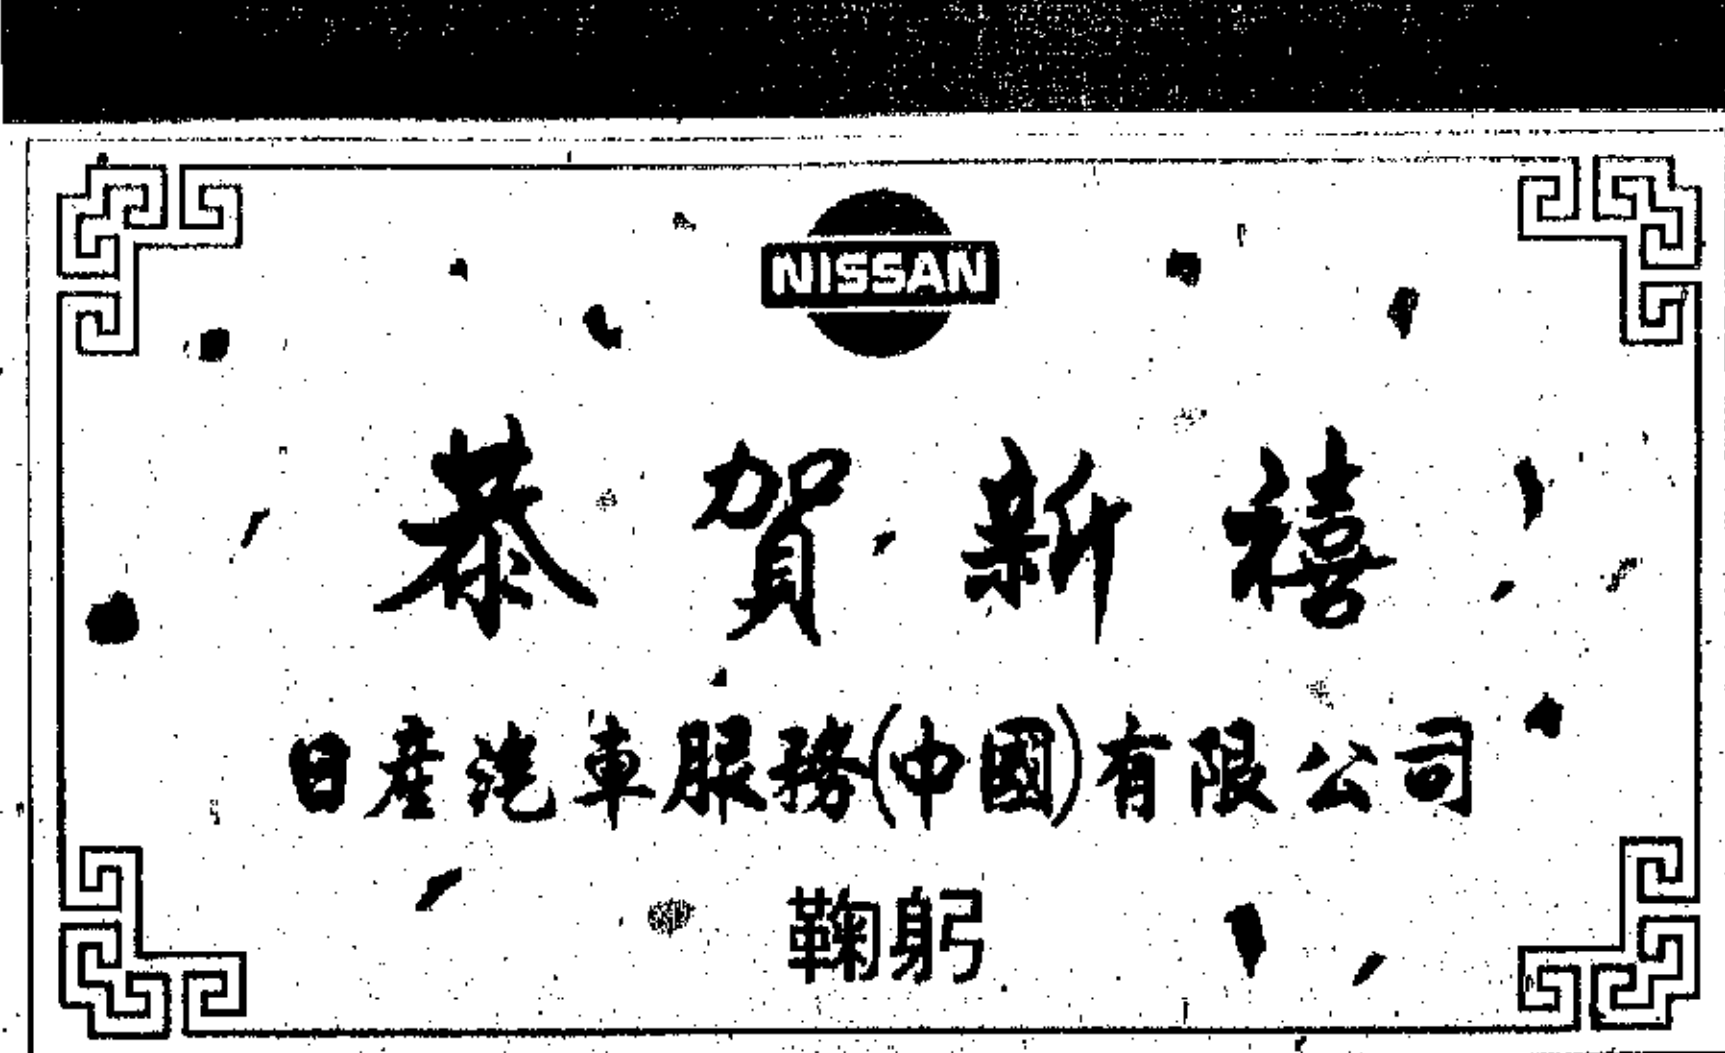 NISSAN
恭賀新禧
日產汽車服務(中國)有限公司
鞠躬